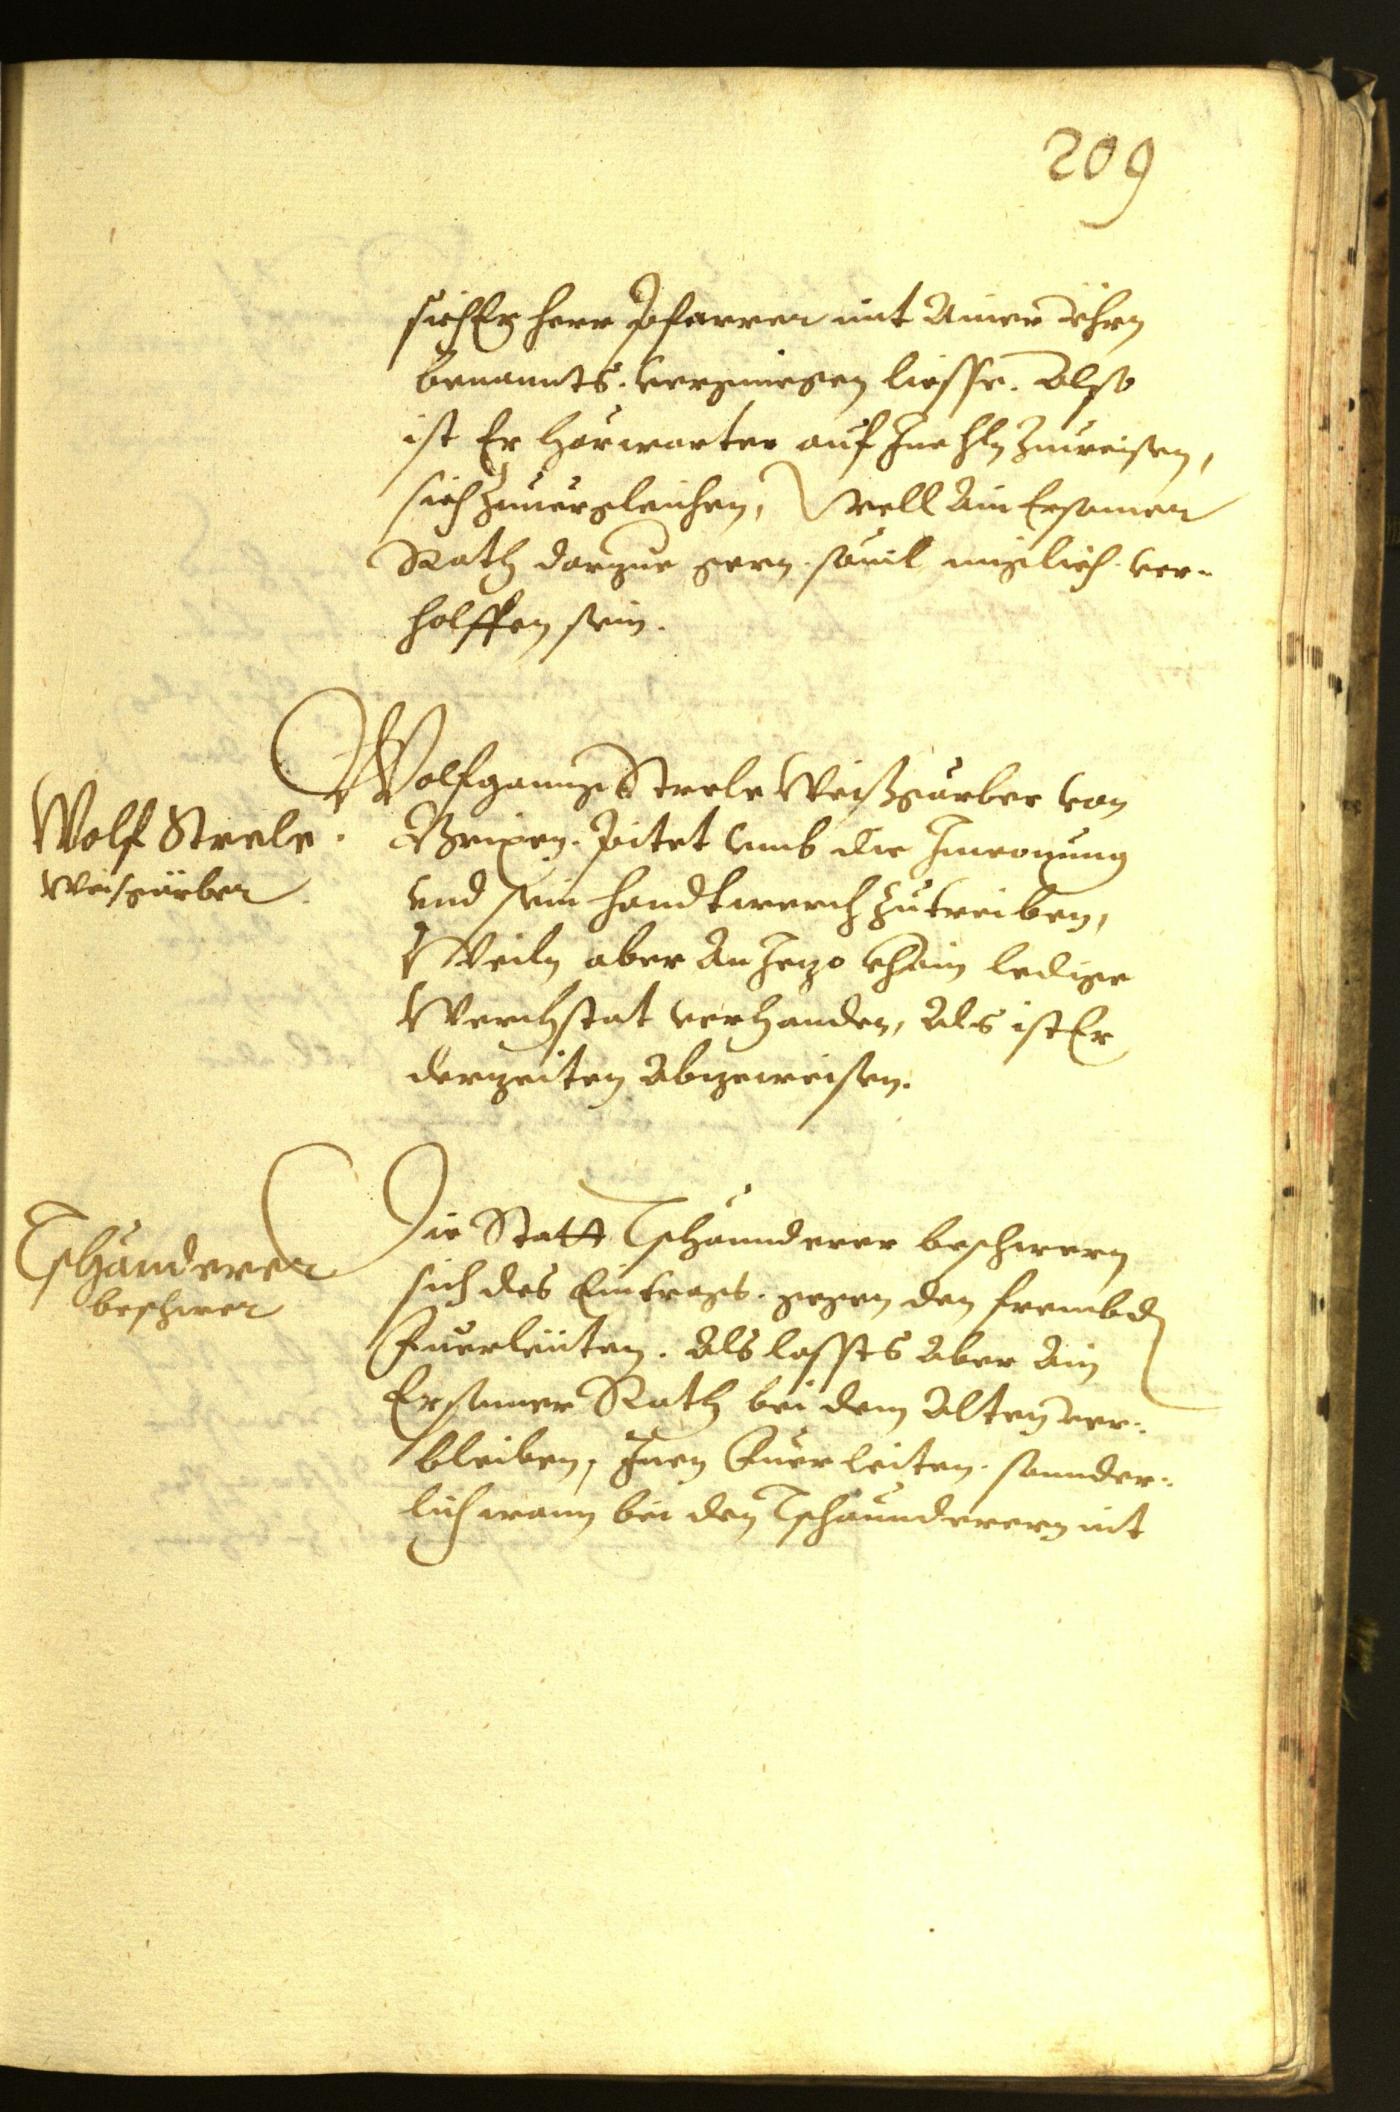 209
sich Er herr Pfarrer mit ainer Ehrn
benannts. vergniegen liesse. Also
ist Er Hörwarter auf Ine hln Zuweisen,
sich Zuuergleichen, Well ain Ersamer
Rath darzue gern. souil miglich ver-
holffen sein.
Wolf Strele.
Weisgärber
Wolfganng Strele Weißgärber von
Brixen. Pitet vmb die Inwonung
vnd sein handtwerch zutreiben,
Weiln aber An Jezo khain ledige
Werchstat verhanden, Als ist Er
derzeiten Abzeweisen.
Tschänderer
beschwer
Die Statt Tschännderer beschwern
sich des Eintrags. gegen den frembdn
Fuerleüten. Als lassts Aber Ain
Ersamer Rath bei dem Alten ver-
bleiben, Inen Fuerleiten. sonnder-
lich wann bei den Tschaunderern nit